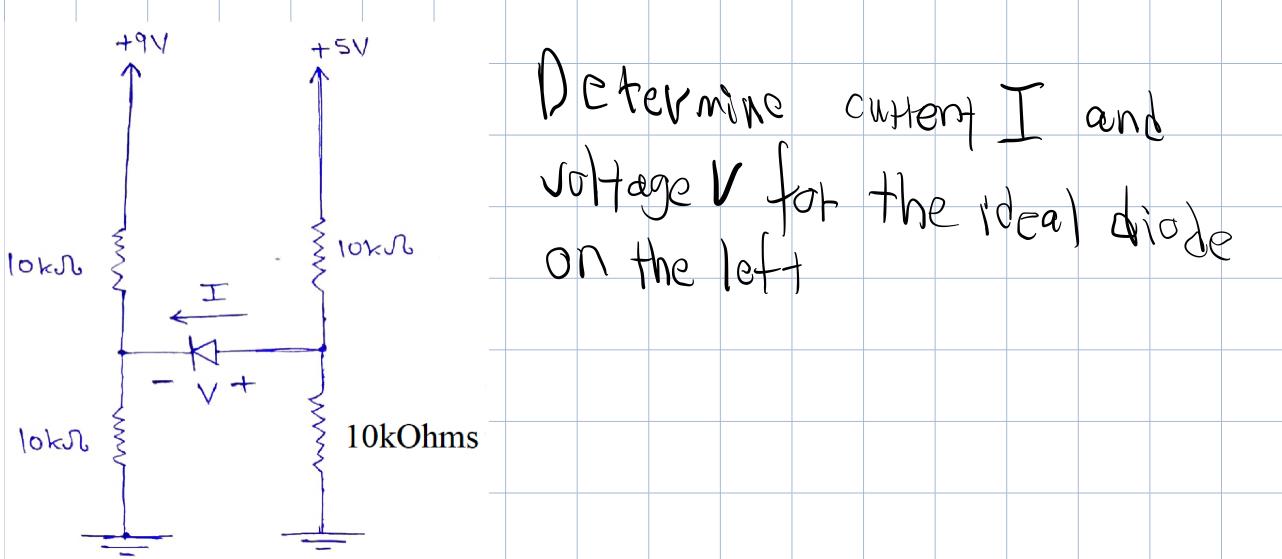 +9V
+5V
10kΩ
10kΩ
I
- V +
10kΩ
10kOhms
Determine current I and
voltage V for the ideal diode
on the left